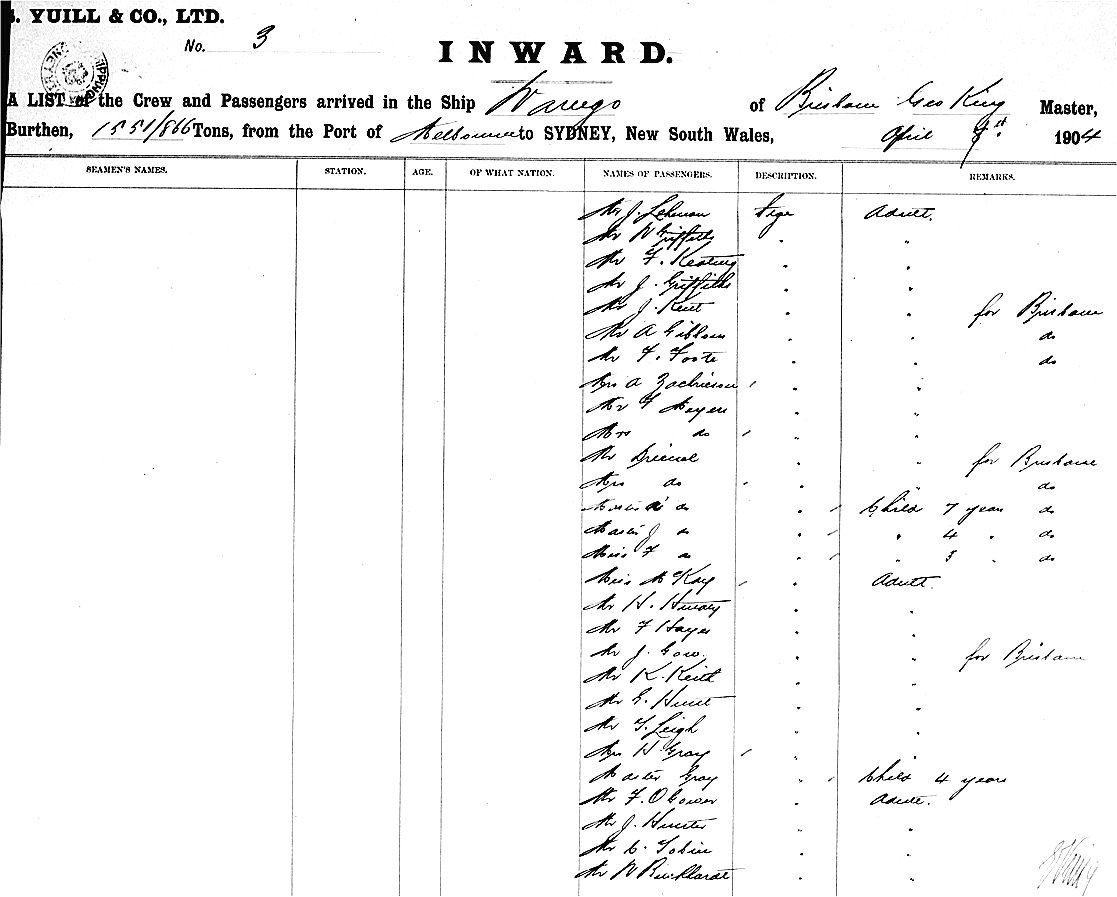 . YUILL & CO., LTD.
No. 3
INWARD.
A LIST of the Crew and Passengers arrived in the Ship Warrego of Brisbane Geo King Master,
Burthen, 1551/866 Tons, from the Port of Melbourne to SYDNEY, New South Wales, April 1904
SEAMEN'S NAMES. STATION. AGE. OF WHAT NATION. NAMES OF PASSENGERS. DESCRIPTION. REMARKS.
Mr J. Lehman Stge Adult.
Mr W Griffiths " "
Mr F. Keating " "
Mr J. Griffiths " "
Mr J. Kent " " for Brisbane
Mr A Gibson " " do
Mr F. Foote " " do
Mrs A Zachrisson " "
Mr F Meyers " "
Mrs do " "
Mr " " for Brisbane
Mrs do " " do
Master do " Child 7 year do
Master J do " " 4 " do
Miss F do " " 3 " do
Miss McKay " Adult.
Mr H. " "
Mr F Hayes " "
Mr J. Gow. " " for Brisbane
Mr K. Keith " "
Mr G. Hunt " "
Mr T. Leigh " "
Mrs H. Gray " "
Master Gray " Child 4 years
Mr F. O Gower " Adult.
Mr J. Hunter " "
Mr C. Tobin " "
Mr W " "